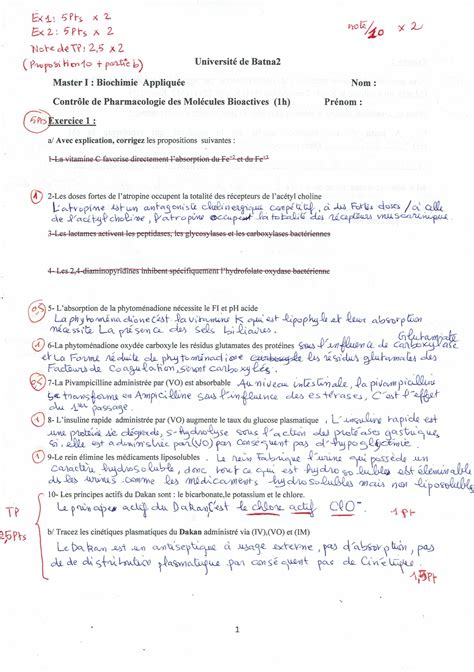 Ex1: 5Pts x 2
Ex2: 5Pts x 2
Note de TP: 2,5 x 2
(Proposition 10 + partie b)
note/10 x 2
Université de Batna2
Master I : Biochimie Appliquée Nom :
Contrôle de Pharmacologie des Molécules Bioactives (1h) Prénom :
5Pts Exercice 1 :
a/ Avec explication, corrigez les propositions suivantes :
1-La vitamine C favorise directement l'absorption du Fe+2 et du Fe+3
1 2-Les doses fortes de l'atropine occupent la totalité des récepteurs de l'acétyl choline
L'atropine est un antagoniste cholinergique compétitif, à des fortes doses / à celle
de l'acétylcholine, l'atropine occupent la totalité des récepteurs muscarinique.
3-Les lactames activent les peptidases, les glycosylases et les carboxylases bactériennes
4- Les 2,4-diaminopyridines inhibent spécifiquement l'hydrofolate oxydase bactérienne
0,5 5- L'absorption de la phytoménadione nécessite le FI et pH acide
La phytoménadione c'est la vitamine K, qui est lipophyle et leur absorption
nécessite La présence des sels biliaires.
1 6-La phytoménadione oxydée carboxyle les résidus glutamates des protéines sous l'influence de Glutamate carboxylase
et La Forme réduite de phytoménadione carboxyle les résidus glutamates des
Facteurs de Coagulation, seront carboxylés.
0,5 7-La Pivampicilline administrée par (VO) est absorbable Au niveau intestinale, la pivampicilline
se transforme en Ampicilline sous l'influence des estérases, C'est l'effet
du 1er passage.
1 8- L'insuline rapide administrée par (VO) augmente le taux du glucose plasmatique . L'insuline rapide est
une protéine se dégrade, s'hydrolyse sous l'action des protéases gastriques
si elle est administrée par(VO) par conséquent pas d'hypoglycémie.
1 9-Le rein élimine les médicaments liposolubles . Le rein fabrique l'urine qui possède un
caractère hydrosoluble, donc tout ce qui est hydrosolubles est éliminable
ds les urines comme les médicaments hydrosolubles mais non liposolubles
10- Les principes actifs du Dakan sont : le bicarbonate,le potassium et le chlore.
Le principe actif du Dakan c'est le chlore actif ClO⁻ 1pt
TP
2,5Pts
b/ Tracez les cinétiques plasmatiques du Dakan administré via (IV),(VO) et (IM)
Le Dakan est un antiseptique à usage externe, pas d'absorption, pas
de de distribution plasmatique par conséquent pas de Cinétique.
1,5Pt
1